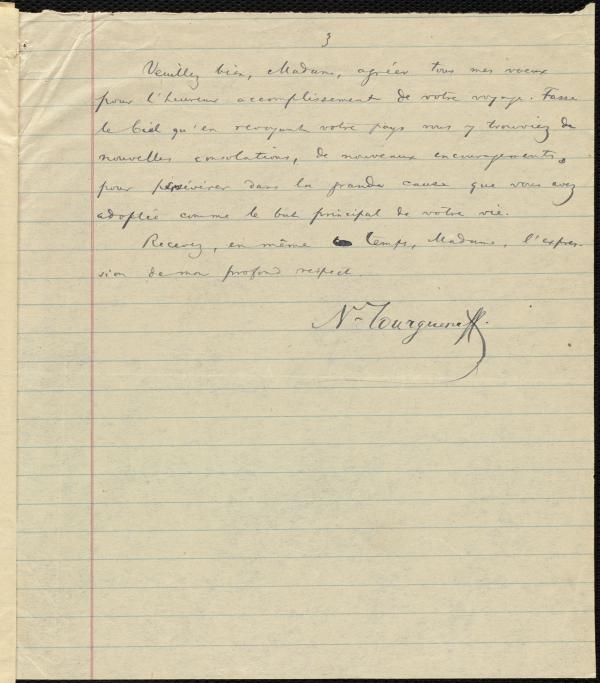 3
Veuillez bien, Madame, agréer tous mes voeux
pour l'heureux accomplissement de votre voyage. Fasse
le Ciel qu'en revoyant votre pays vous y trouviez de
nouvelles consolations, de nouveaux encouragements
pour persévérer dans la grande cause que vous avez
adoptée comme le but principal de votre vie.
Recevez, en même temps, Madame, l'expres-
sion de mon profond respect.
N. Tourgueneff.